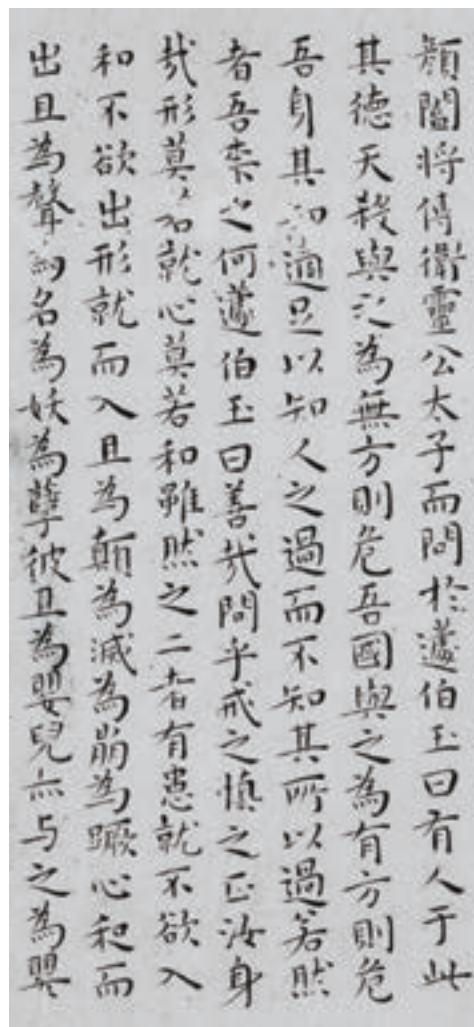 顏闔將傅衛靈公太子而問於蘧伯玉曰有人于此
其德天殺與之為無方則危吾國與之為有方則危
吾身其知適足以知人之過而不知其所以過若然
者吾柰之何蘧伯玉曰善哉問乎戒之慎之正汝身
哉形莫若就心莫若和雖然之二者有患就不欲入
和不欲出形就而入且為顛為滅為崩為蹶心和而
出且為聲為名為妖為孽彼且為嬰兒亦与之為嬰